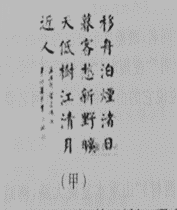 移舟泊煙渚日
暮客愁新野曠
天低樹江清月
近人
(甲)